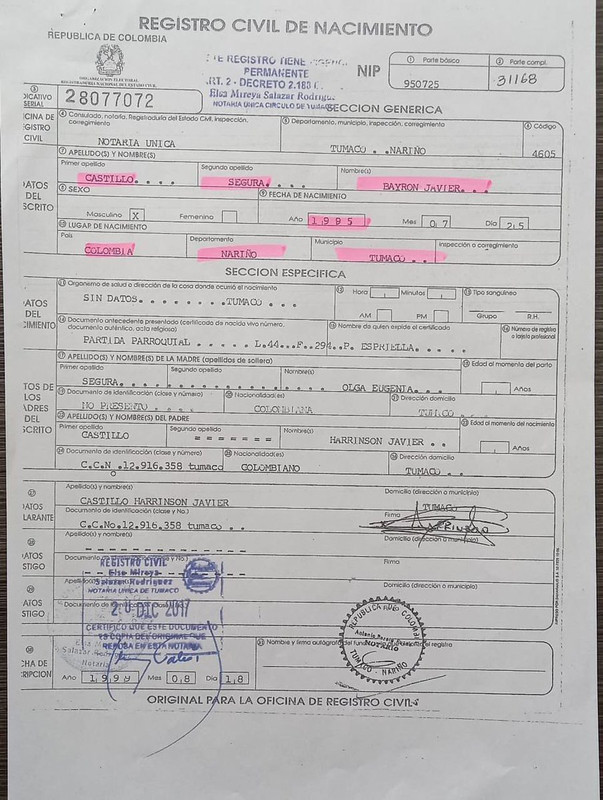 REGISTRO CIVIL DE NACIMIENTO
REPUBLICA DE COLOMBIA
ORGANIZACION ELECTORAL
REGISTRADURIA NACIONAL DEL ESTADO CIVIL
REGISTRO TIENE
PERMANENTE
ART. 2 - DECRETO 2.188
Elsa Mireya Salazar Rodrigu
NOTARIA UNICA CIRCULO DE TUMACO
NIP
1 Parte básica
950725
2 Parte compl.
31168
3
DICATIVO
SERIAL
28077072
SECCION GENERICA
CINA DE
GISTRO
CIVIL
4 Consulado, notaría, Registraduría del Estado Civil, Inspección, corregimiento
NOTARIA UNICA
5 Departamento, municipio, inspección, corregimiento
TUMACO . . NARIÑO
6 Código
4605
7 APELLIDO(S) Y NOMBRE(S)
ATOS
DEL
SCRITO
Primer apellido
CASTILLO. . . .
Segundo apellido
SEGURA. . . .
Nombre(s)
BAYRON JAVIER. . .
8 SEXO
Masculino X
Femenino
9 FECHA DE NACIMIENTO
Año 1995
Mes 07
Día 25
10 LUGAR DE NACIMIENTO
País
COLOMBIA
Departamento
NARIÑO
Municipio
TUMACO . .
Inspección o corregimiento
SECCION ESPECIFICA
ATOS
DEL
CIMIENTO
11 Organismo de salud o dirección de la casa donde ocurrió el nacimiento
SIN DATOS. . . . . . . .TUMACO . . .
12 Hora
Minutos
AM
PM
13 Tipo sanguíneo
Grupo
R.H.
14 Documento antecedente presentado (certificado de nacido vivo número, documento auténtico, acta religiosa)
PARTIDA PARROQUIAL . . . . . L.44...F..294..P. ESPRIELLA. . . .
15 Nombre de quien expide el certificado
16 Número de registro o tarjeta profesional
17 APELLIDO(S) Y NOMBRES DE LA MADRE (apellidos de soltera)
TOS DE
LOS
ADRES
DEL
SCRITO
Primer apellido
SEGURA. . . . . . . .
Segundo apellido
Nombre(s)
OLGA EUGENIA. . .
18 Edad al momento del parto
Años
19 Documento de identificación (clase y número)
NO PRESENTO . . . . .
20 Nacionalidad(es)
COLOMBIANA
21 Dirección domicilio
TUMACO
22 APELLIDO(S) Y NOMBRE(S) DEL PADRE
Primer apellido
CASTILLO
Segundo apellido
= = = = = = =
Nombre(s)
HARRINSON JAVIER . .
23 Edad al momento del nacimiento
Años
24 Documento de identificación (clase y número)
C.C.N .12.916.358 tumaco
25 Nacionalidad(es)
COLOMBIANO
26 Dirección domicilio
TUMACO. . .
27
ATOS
LARANTE
Apellido(s) y nombre(s)
CASTILLO HARRINSON JAVIER
Domicilio (dirección o municipio)
TUMACO
Documento de identificación (clase y No.)
C.C.No.12.916.358 tumaco . .
Firma
28
ATOS
STIGO
Apellido(s) y nombre(s)
Domicilio (dirección o municipio)
Documento de identificación (clase y No.)
Firma
29
ATOS
STIGO
Apellido(s) y nombre(s)
Domicilio (dirección o municipio)
Documento de identificación (clase y No.)
REGISTRO CIVIL
Elsa Mireya
Salazar Rodriguez
NOTARIA UNICA DE TUMACO
20 DIC 2017
CERTIFICO QUE ESTE DOCUMENTO
ES COPIA DEL ORIGINAL QUE
REPOSA EN ESTA NOTARIA
30
CHA DE
RIPCION
Año 1999
Mes 08
Día 18
31 Nombre y firma autógrafa del funcionario ante quien se registra
REPUBLICA DE COLOMBIA
NOTARIO
TUMACO - NARIÑO
ORIGINAL PARA LA OFICINA DE REGISTRO CIVIL